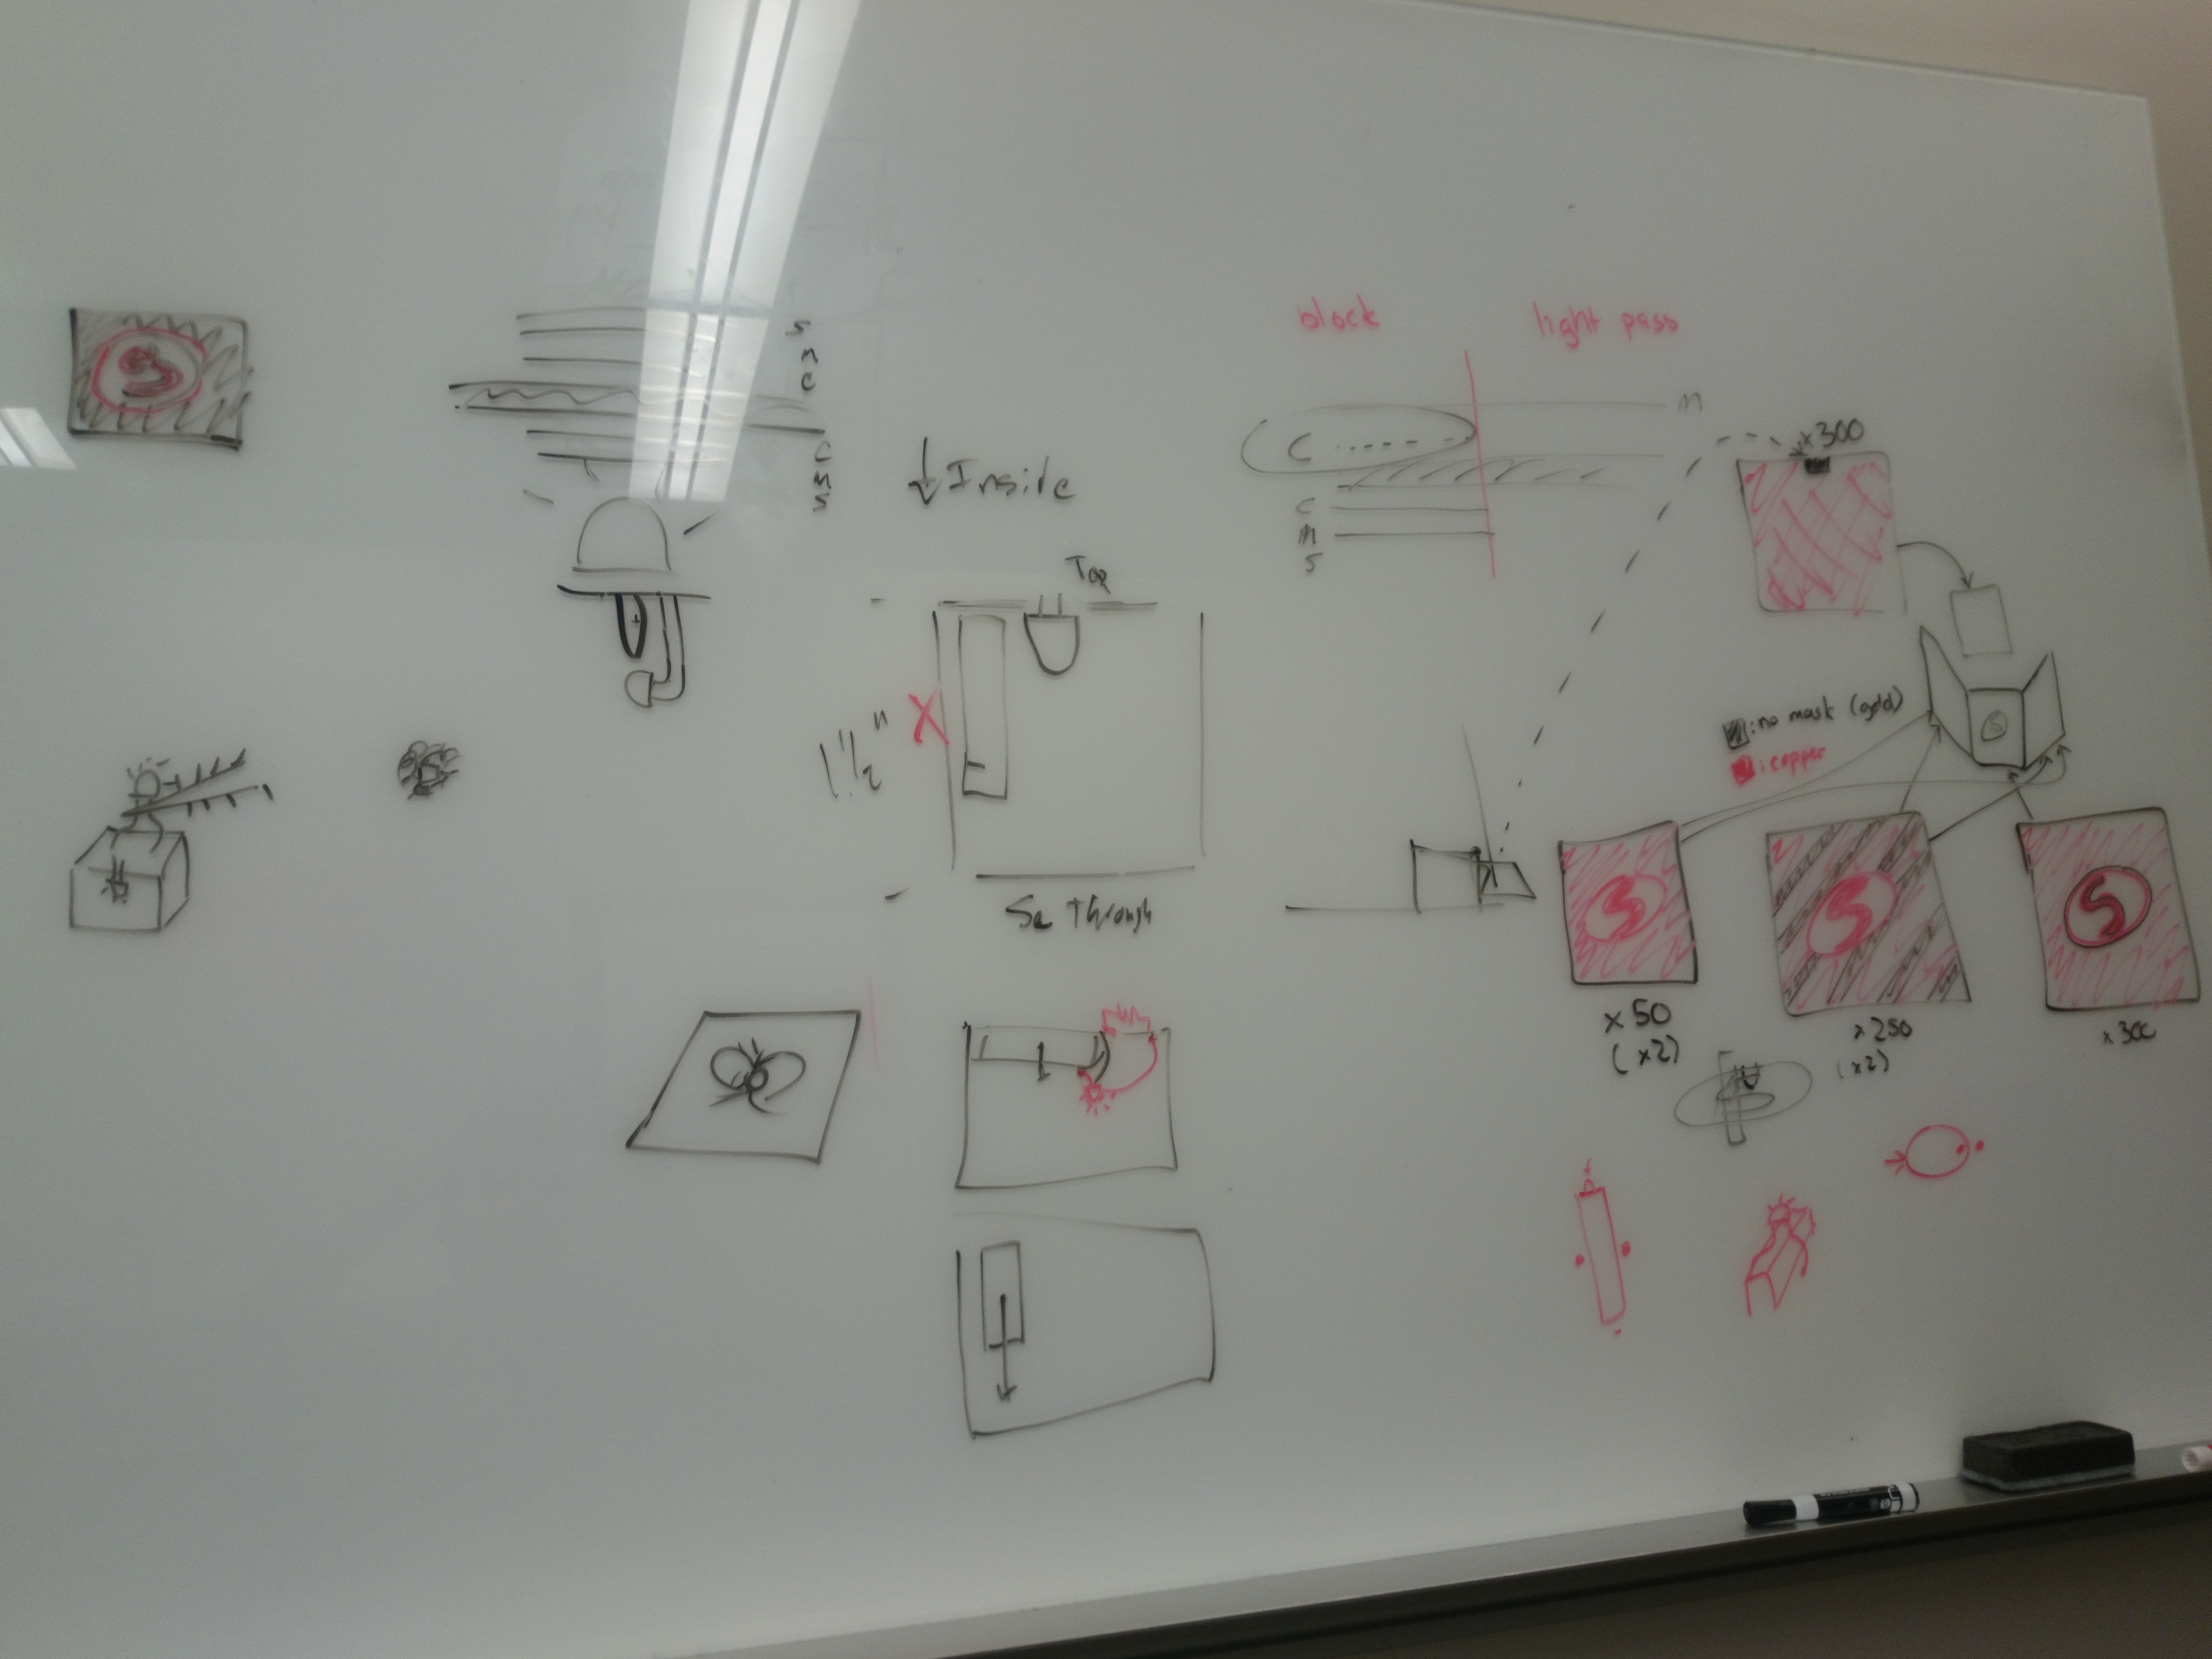 S
S
m
c
C
m
S
↓ Inside
Top
1 1/2"
X
Se Through
block
light pass
m
C
C
m
S
x300
S
: no mask (gold)
: copper
S
S
S
x 50
(x2)
x 250
(x2)
x 300